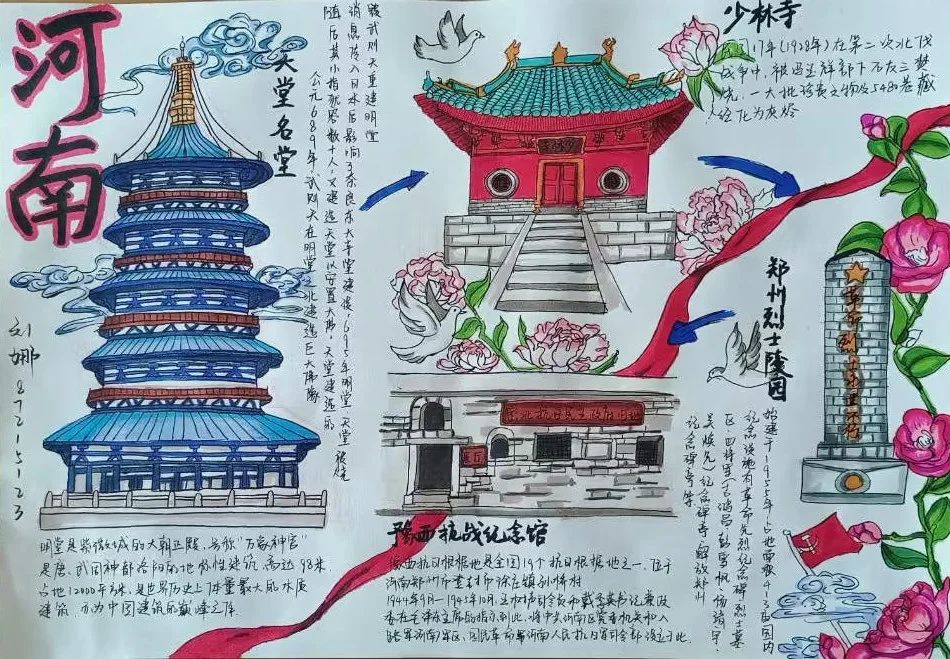 河南
天堂明堂
公元689年，武则天在明堂之北建造巨大佛像
随后其小指犹容数十人，又建造天堂以安置大佛。天堂建造后
消息传入日本后影响了奈良东大寺堂建设。695年明堂、天堂被烧
武则天重建明堂
刘娜 8721-5123
明堂是紫微城的大朝正殿，号称“万象神宫”
是唐、武周神都洛阳的地标性建筑，高达98米
占地12000平方米，是世界历史上体量最大的木质
建筑，亦为中国建筑的巅峰之作
少林寺
民国17年(1928年)在第二次北伐
战争中，被冯玉祥部下石友三焚
烧，一大批珍贵文物及5480卷藏
经化为灰烬
少林寺
郑州烈士陵园
始建于1955年，占地面积413亩园内
纪念设施有革命先烈纪念碑烈士墓
区、四将军(吉鸿昌、彭雪枫、杨靖宇、
吴焕先)纪念碑亭、解放郑州
纪念碑亭等
革命烈士永垂不朽
豫西抗战纪念馆
豫西抗日根据地是全国19个抗日根据地之一，位于
河南郑州市登封市徐庄镇
1944年9月—1945年10月，